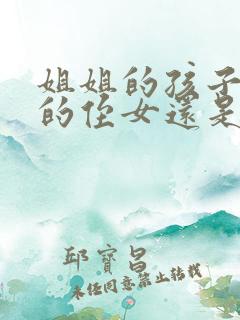 姐姐的孩子
的侄女還是
邱寶昌
未經同意禁止轉載